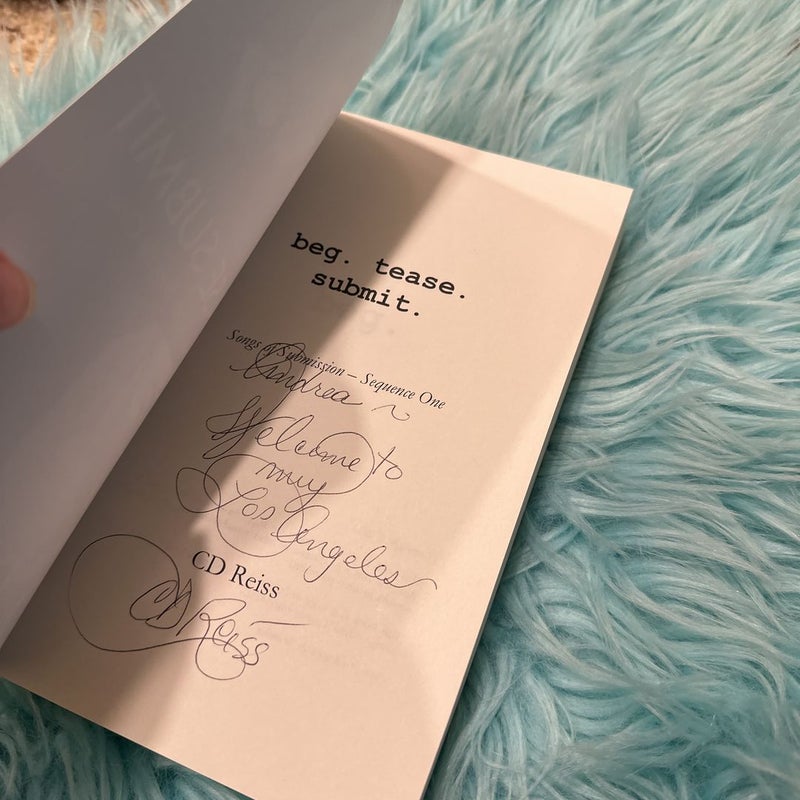 beg. tease.
submit.
Songs of Submission – Sequence One
Andrea ~
Welcome to
my
Los Angeles
CD Reiss
CD Reiss